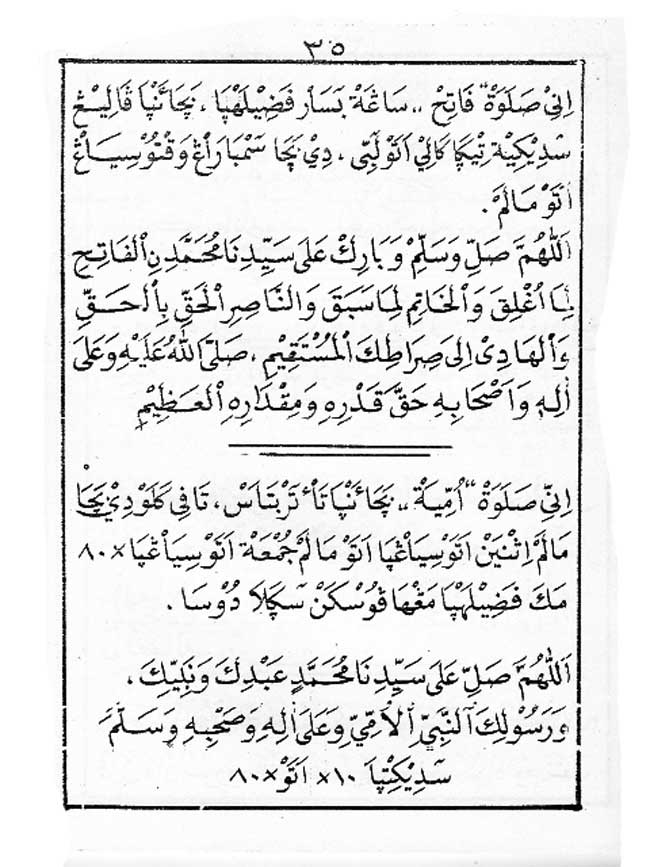 ٣٥
اِنِيْ صَلَوَةْ " فَاتِحْ ,, سَاڠَةْ بَسَارْ فَضِيْلَهْپَا ، بَچَاءَنْپَا ڤَالِيْڠْ
سَدِيْكِيْةْ تِيْݢَا كَالِيْ اَتَوْ لَبِّى ، دِيْ بَچَا سَمْبَارَاڠْ وَقْتُوْ سِيَاڠْ
اَتَوْ مَالَمْ .
اَللّٰهُمَّ صَلِّ وَسَلِّمْ وَبَارِكْ عَلَى سَيِّدِنَا مُحَمَّدِنِ الْفَاتِحِ
لِمَا اُغْلِقَ وَالْخَاتِمِ لِمَا سَبَقَ وَالنَّاصِرِ الْحَقِّ بِالْحَقِّ
وَالْهَادِيْ اِلَى صِرَاطِكَ الْمُسْتَقِيْمِ ، صَلَّى اللّٰهُ عَلَيْهِ وَعَلَى
اٰلِهِ وَاَصْحَابِهِ حَقَّ قَدْرِهِ وَمِقْدَارِهِ الْعَظِيْمِ
اِنِيْ صَلَوَةْ " اُمِّيَةْ ,, بَچَاءَنْپَا تَاْ تَرْبَتَاسْ ، تَاڤِي كَلَوْ دِيْ بَچَا
مَالَمْ اِثْنَيْنْ اَتَوْ سِيَاڠْپَا اَتَوْ مَالَمْ جُمْعَةْ اَتَوْ سِيَاڠْپَا ×٨٠
مَكَ فَضِيْلَهْپَا مَڠْهَاڤُوْسْكَنْ سݢَالَا دُوْسَا .
اَللّٰهُمَّ صَلِّ عَلَى سَيِّدِنَا مُحَمَّدٍ عَبْدِكَ وَنَبِيِّكَ ،
وَرَسُوْلِكَ النَّبِيِّ الْاُمِّيِّ وَعَلَى اٰلِهِ وَصَحْبِهِ وَسَلَّمَ
سَدِيْكِتْپَا ×١٠ اَتَوْ ×٨٠